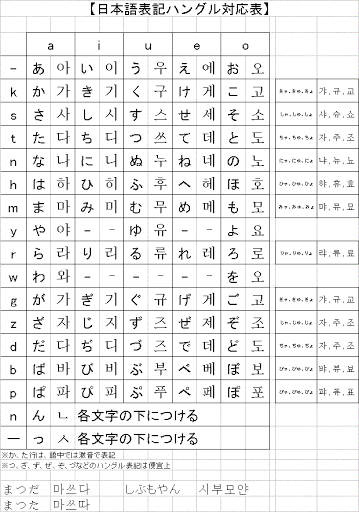 【日本語表記ハングル対応表】
a i u e o
- あ 아 い 이 う 우 え 에 お 오
k か 가 き 기 く 구 け 게 こ 고 きゃ.きゅ.きょ 갸.규.교
s さ 사 し 시 す 스 せ 세 そ 소 しゃ.しゅ.しょ 샤.슈.쇼
t た 다 ち 디 つ 쓰 て 데 と 도 ちゃ.ちゅ.ちょ 자.주.조
n な 나 に 니 ぬ 누 ね 네 の 노 にゃ.にゅ.にょ 냐.뉴.뇨
h は 하 ひ 히 ふ 후 へ 헤 ほ 호 ひゃ.ひゅ.ひょ 햐.휴.효
m ま 마 み 미 む 무 め 메 も 모 みゃ.みゅ.みょ 먀.뮤.묘
y や 야 - - ゆ 유 - - よ 요
r ら 라 り 리 る 류 れ 레 ろ 로 りゃ.りゅ.りょ 랴.류.료
w わ 와 - - - - - - を 오
g が 가 ぎ 기 ぐ 규 げ 게 ご 고 ぎゃ.ぎゅ.ぎょ 갸.규.교
z ざ 자 じ 지 ず 즈 ぜ 제 ぞ 조 じゃ.じゅ.じょ 자.주.조
d だ 다 ぢ 디 づ 즈 で 데 ど 도 ぢゃ.ぢゅ.ぢょ 자.주.조
b ば 바 び 비 ぶ 부 べ 베 ぼ 보 びゃ.びゅ.びょ 뱌.뷰.뵤
p ぱ 파 ぴ 피 ぷ 푸 ぺ 페 ぽ 포 ぴゃ.ぴゅ.ぴょ 퍄.퓨.표
n ん ㄴ 各文字の下につける
ー っ ㅅ 各文字の下につける
※か、た行は、語中では激音で表記
※つ、ざ、ず、ぜ、ぞ、づなどのハングル表記は便宜上
まつだ 마쓰다 しぶもやん 시부모얀
まつた 마쓰따